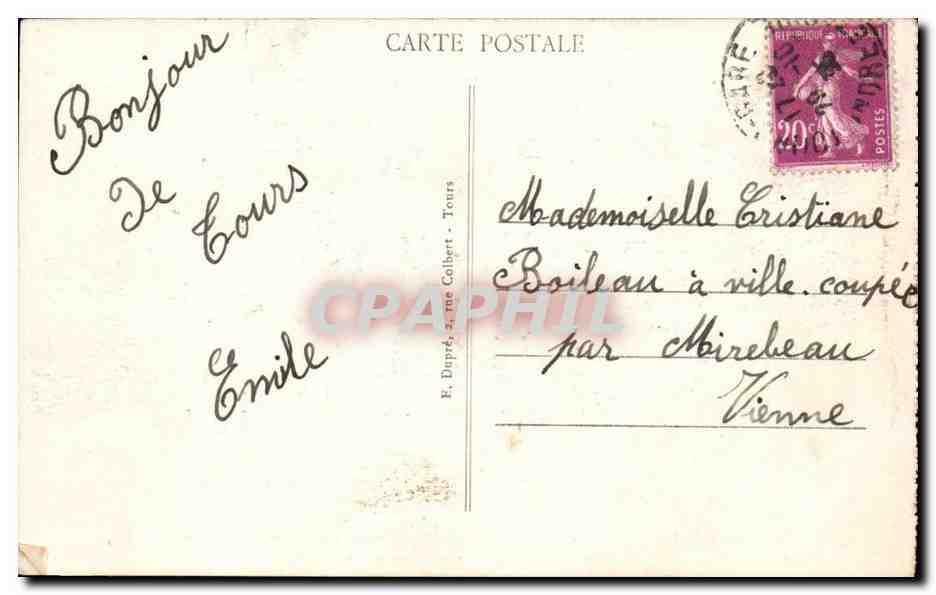 CARTE POSTALE
Bonjour
de
Tours
Emile
E. Dupré, 2, rue Colbert - Tours
REPUBLIQUE FRANÇAISE
20c
POSTES
Mademoiselle Cristiane
Boileau à ville. coupée
par Mirebeau
Vienne
CPAPHIL